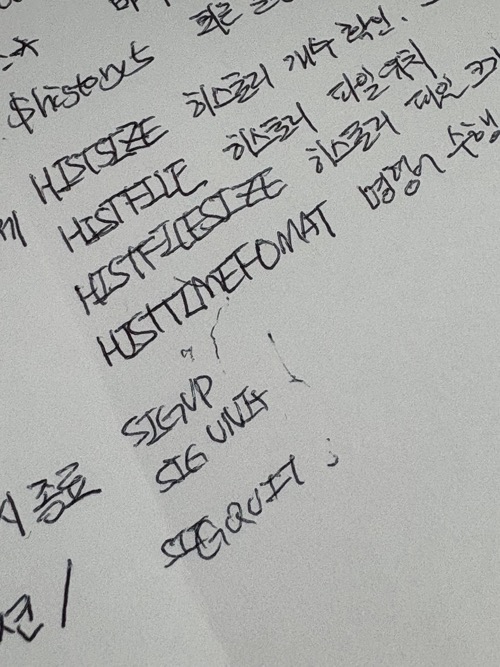 $history 5 최근
HISTSIZE 히스토리 개수 확인.
HISTFILE 히스토리 파일 위치
HISTFILESIZE 히스토리 파일 크기
HISTTIMEFOMAT 명령어 수행
SIGUP
SIG
SIGQUIT
종료